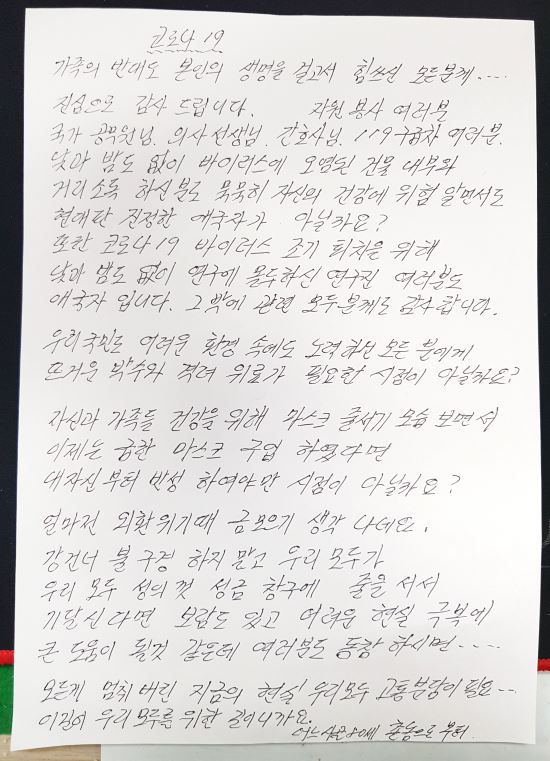 코로나 19
가족의 반대도 본인의 생명을 걸고서 힘쓰신 모든분께....
진심으로 감사 드립니다. 자원 봉사 여러분
국가 공무원님. 의사 선생님. 간호사님. 119 구급차 여러분.
낮과 밤도 없이 바이러스에 오염된 건물 내부와
거리소독 하신분도 묵묵히 자신의 건강에 위협 알면서도
현대판 진정한 애국자가 아닐까요?
또한 코로나19 바이러스 조기 퇴치를 위해
낮과 밤도 없이 연구에 몰두하신 연구진 여러분도
애국자 입니다. 그 밖에 관련 모두분께도 감사합니다.
우리 국민도 어려운 환경 속에도 노력하신 모든 분에게
뜨거운 박수와 격려 위로가 필요한 시점이 아닐까요?
자신과 가족들 건강을 위해 마스크 줄서기 모습 보면서
이제는 급한 마스크 구입 하였다면
내자신부터 반성 하여야만 시점이 아닐까요?
얼마전 외환위기때 금모으기 생각 나네요.
강건너 불구경 하지 말고 우리 모두가
우리 모두 성의껏 성금 창구에 줄을 서서
기달신다면 보람도 있고 어려운 현실 극복에
큰 도움이 될것 같은데 여러분도 동참 하시면....
모든게 멈춰 버린 지금의 현실 우리모두 고통분담이 필요...
이길이 우리 모두를 위한 길이니까요.
부터